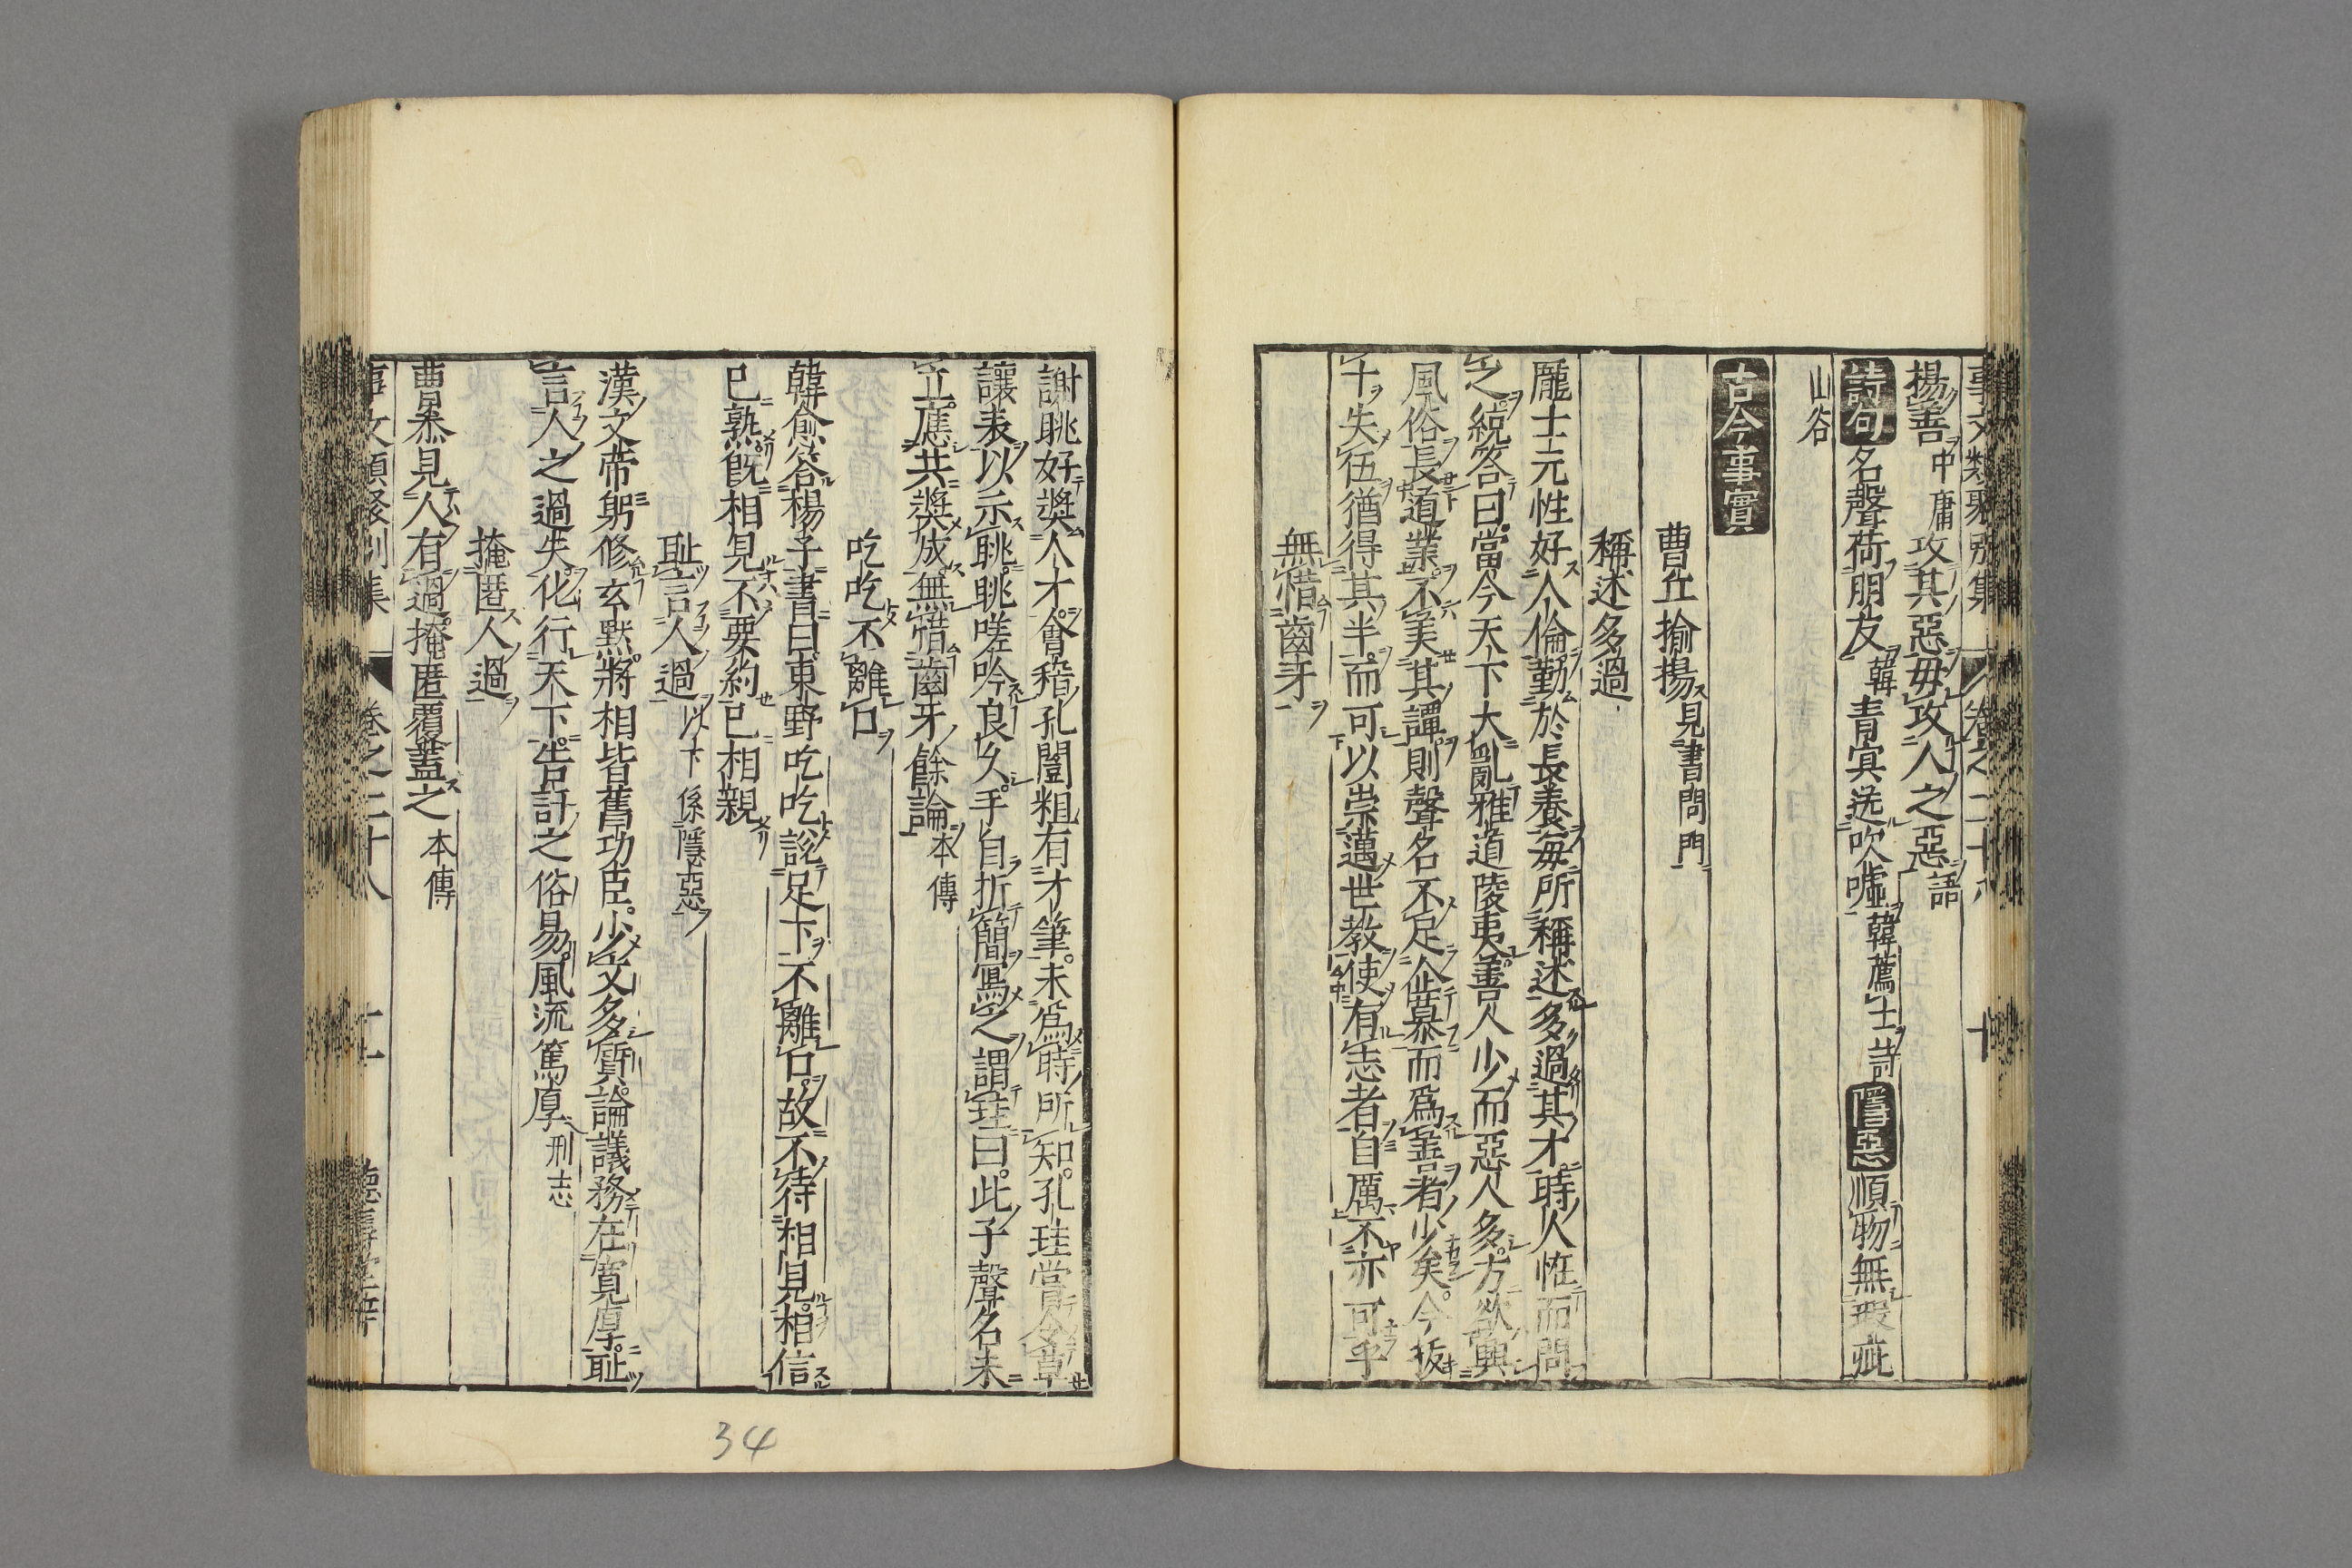 事文類聚別集 卷之二十八 十
揚善中庸攻其惡毋攻人之惡語
詩句名聲荷朋友韓青冥送吹噓韓薦士詩隱惡順物無瑕疵
山谷
古今事實
曹丘揄揚見書問門
稱述多過
龐士元性好人倫勤於長養每所稱述多過其才時人恠而問
之統答曰當今天下大亂雅道陵夷善人少而惡人多方欲興
風俗長道業不美其譚則聲名不足企慕而爲善者少矣今拔
十失伍猶得其半而可以崇邁世教使有志者自厲不亦可乎
無惜齒牙
謝眺好奬人才會稽孔闓粗有才筆未爲時所知孔珪嘗令草
讓表以示眺眺嗟吟良久手自折簡寫之謂珪曰此子聲名未
立應共奬成無惜齒牙餘論本傳
吃吃不離口
韓愈答楊子書曰東野吃吃說足下不離口故不待相見相信
已熟旣相見不要約已相親
耻言人過以下係隱惡
漢文帝躬修玄默將相皆舊功臣少文多質論議務在寬厚耻
言人之過失化行天下告訐之俗易風流篤厚刑志
掩匿人過
曹參見人有過掩匿覆蓋之本傳
事文類聚別集 卷之二十八 十一